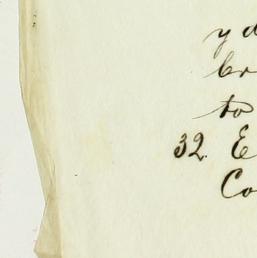 y d
br
to
32. E
Co